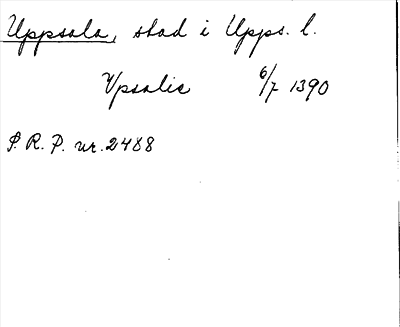 Uppsala, stad i Upps. l.
Vpsalie 6/7 1390
P. R. P. nr. 2488